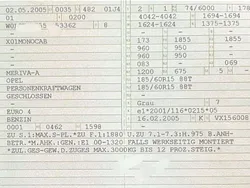 02.05.2005 0035 482 01J4 2 1 74/6000 178
01 0200 4042-4042 1694-1694
1624-1624 1375-1375
X01MONOCAB 173 1855 1855
960 950
960 950
083 069
MERIVA-A 1200 675 5
OPEL 185/60R15 88T
PERSONENKRAFTWAGEN 185/60R15 88T
GESCHLOSSEN
Grau 7
EURO 4 e1*2001/116*0215*05
BENZIN 16.02.2005 K VX156008
0001 0462 1598
ZU S.1:MAX.S-PL.*ZU F.1:1880 D.ZU 7.1-7.3:M.975 B.ANH-
BETR.*M.AHK.:GEN.:E1 00-1320 FALLS WERKSEITIG MONTIERT
*ZUL.GES-GEW.D.ZUGES MAX.3000KG BIS 12 PROZ.STEIG.*